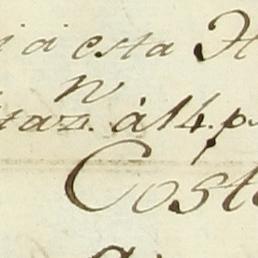 a esta H
N
taz. á 14. p
Cost